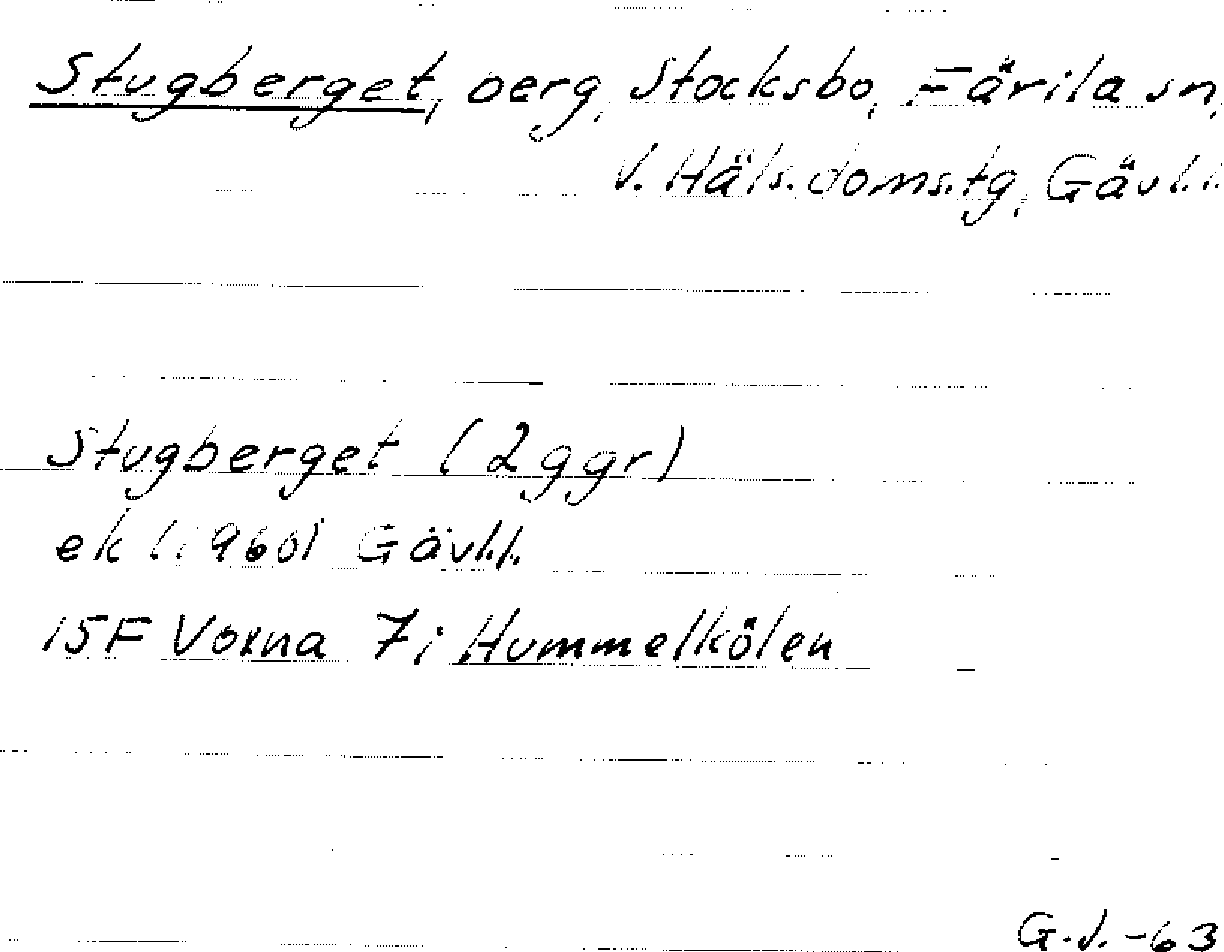 Stugberget, berg, Stocksbo, Färila sn,
V. Häls. doms.tg, Gävl.l.
Stugberget (2ggr)
ek (1960) Gävl.l.
15F Voxna 7i Hummelkölen
G.J. -63